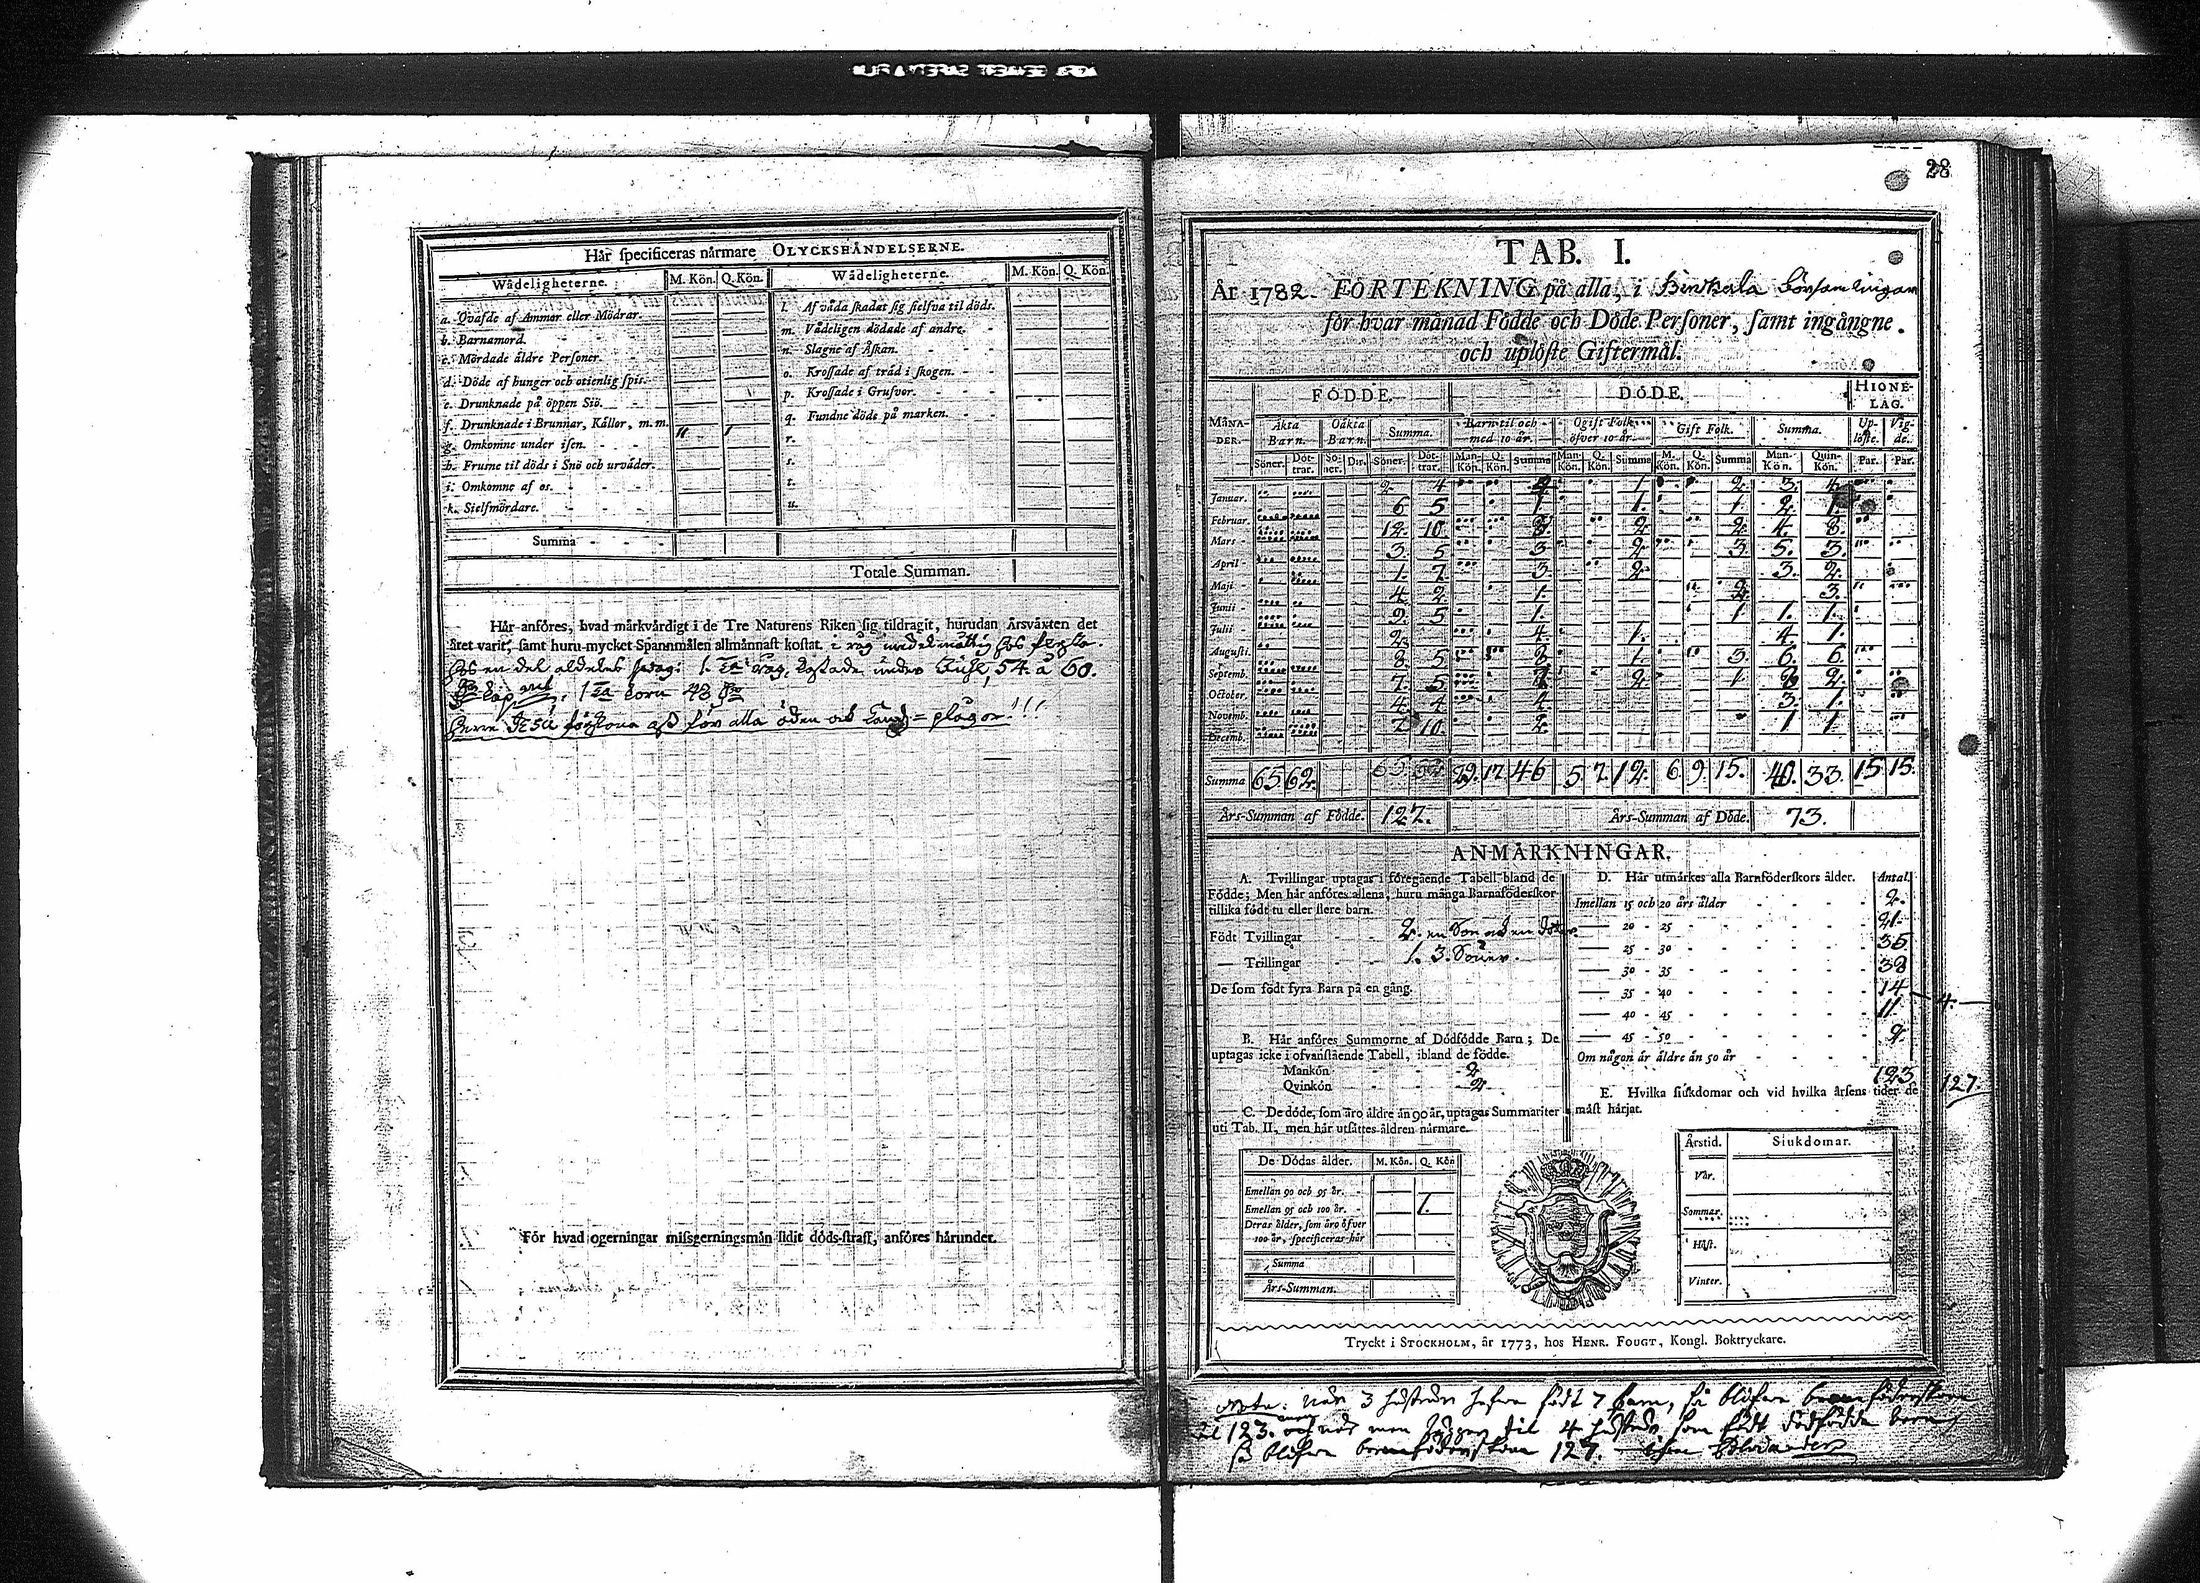 28
Här specificeras närmare OLYCKSHÄNDELSERNE.
Wådeligheterne. M. Kön. Q. Kön. Wådeligheterne. M. Kön. Q. Kön.
a. Qväfde af Ammor eller Mödrar.
b. Barnamord.
c. Mördade äldre Personer.
d. Döde af hunger och otienlig spis.
e. Drunknade på öppen Siö.
f. Drunknade i Brunnar, Källor, m. m.
g. Omkomne under isen.
h. Frusne til döds i Snö och urväder.
i. Omkomne af os.
k. Sielfmördare.
l. Af våda skadat sig sielfva til döds.
m. Vådeligen dödade af andre.
n. Slagne af Åskan.
o. Krossade af träd i skogen.
p. Krossade i Grufvor.
q. Fundne döde på marken.
r.
s.
t.
u.
Summa
Totale Summan.
Här anföres, hvad märkvärdigt i de Tre Naturens Riken sig tildragit, hurudan Årsväxten det
året varit, samt huru mycket Spannmålen allmännast kostat. i råg medelmåttig hos
hos en del aldeles 1. råg, kostade under 54. à 60.
1 korn 48
Herre för alla öden och Land=plågor!!!
För hvad ogerningar missgerningsmän lidit döds-straff, anföres härunder.
TAB. I.
År 1782. FÖRTEKNING på alla, i Församlingar
för hvar månad Födde och Döde Personer, samt ingångne
och uplöste Giftermål.
MÅNADER. FÖDDE. DÖDE. HIONELAG.
Äkta Barn. Oäkta Barn. Summa. Barn til och med 10 år. Ogift Folk öfver 10 år. Gift Folk. Summa. Uplöste. Vigde.
Söner. Döttrar. Söner. Dör. Söner. Döttrar. Man-Kön. Q. Kön. Summa Man-Kön. Q. Kön. Summa M. Kön. Q. Kön. Summa Man-Kön. Quin-Kön. Par. Par.
Januar. 2 4 1 2 3. 4.
Februar. 6 5 1. 1. 1. 2. 1.
Mars 12. 10. 3. 2 2 4. 8
April 3. 5 3 2 3 5. 3
Maji 1. 7 3. 2 3. 2.
Junii 4 2 1. 2 3.
Julii 9. 5 1. 1 1. 1.
Augusti. 2 4. 1. 4 1.
Septemb. 8 5 1. 3. 6. 6.
October. 7. 5 2 1 2.
Novemb. 4 4 4 3. 1.
Decemb. 7 10. 2. 1 1
Summa 65 62. 65. 62. 29. 17 46 5 7. 12. 6. 9. 15. 40. 33. 15 15.
Års-Summan af Födde. 127. Års-Summan af Döde. 73.
ANMÄRKNINGAR.
A. Tvillingar uptagas i föregående Tabell bland de
Födde; Men här anföres allena, huru många Barnaföderskor
tillika födt tu eller flere barn.
Födt Tvillingar 2. en Son och en dotter
— Trillingar 1. 3. Söner.
De som födt fyra Barn på en gång.
B. Här anföres Summorne af Dödfödde Barn; De
uptagas icke i ofvanstående Tabell, ibland de födde.
Mankön 2
Qvinkön 2
C. De döde, som äro äldre än 90 år, uptagas Summariter
uti Tab. II, men här utsättes åldren närmare.
De Dödas ålder. M. Kön. Q. Kön
Emellan 90 och 95 år.
Emellan 95 och 100 år. 1.
Deras ålder, som äro öfver
100 år, specificeras här
Summa
Års-Summan.
D. Här utmärkes alla Barnföderskors ålder. Antal.
Imellan 15 och 20 års ålder 2.
20 - 25 21.
25 - 30 35
30 - 35 38
35 - 40 14
40 - 45 11. 4.
45 - 50 2.
Om någon är äldre än 50 år
123 127.
E. Hvilka siukdomar och vid hvilka årsens tider de
mäst härjat.
Årstid. Siukdomar.
Vår.
Sommar.
Höst.
Vinter.
Tryckt i STOCKHOLM, år 1773, hos HENR. FOUGT, Kongl. Boktryckare.
Nota: när 3 hustrur hafva födt 7 barn, så blifva barnföderskorne
123. och när man lägger til 4 hustrur som födt dödfödda barn
så blifva barnföderskorne 127.